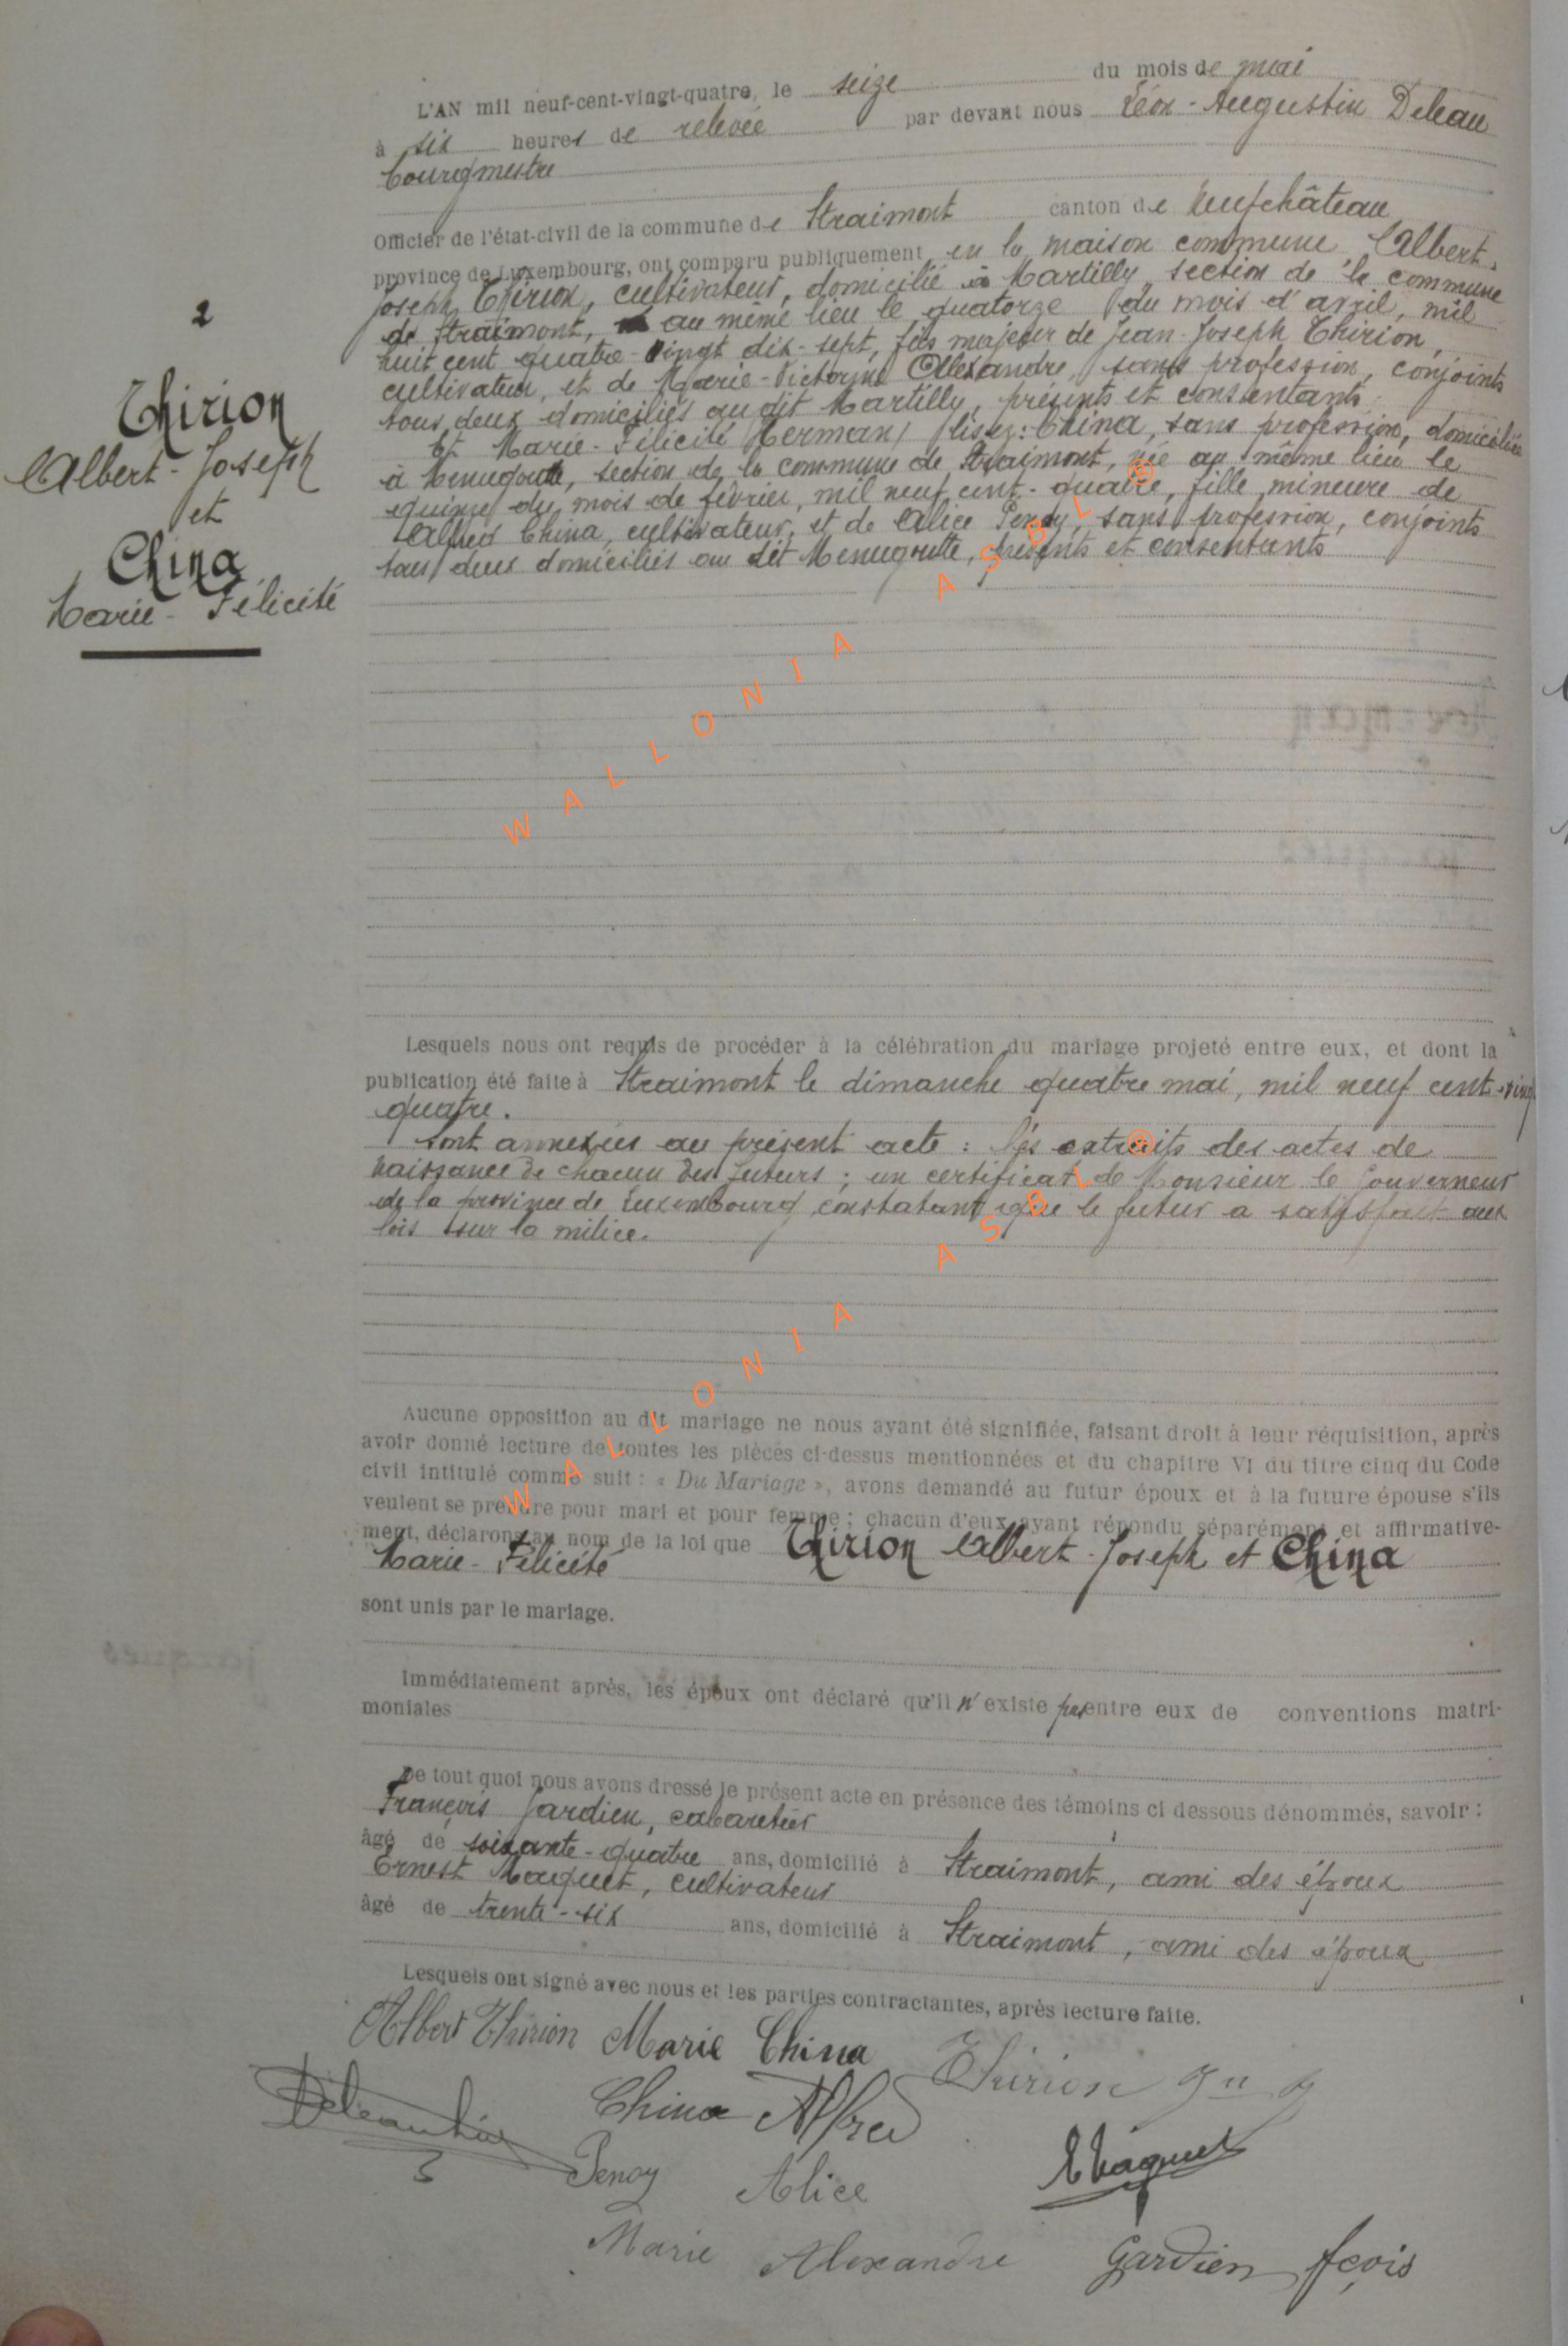 2
Thirion
Albert-Joseph
et
China
Marie-Félicité
L'AN mil neuf-cent-vingt-quatre, le seize du mois de mai
à six heures de relevée par devant nous Léon-Augustin Deleau
bourgmestre
Officier de l'état-civil de la commune de Straimont canton de Neufchâteau
province de Luxembourg, ont comparu publiquement en la maison commune, Albert-
Joseph Thirion, cultivateur, domicilié à Martilly, section de la commune
de Straimont, au même lieu le quatorze du mois d'avril, mil
huit cent quatre-vingt dix-sept, fils majeur de Jean-Joseph Thirion,
cultivateur, et de Marie-Victorine Alexandre, sans profession, conjoints
tous deux domiciliés au dit Martilly, présents et consentants.
Et Marie-Félicité Herman, lisez: China, sans profession, domiciliée
à Menugoutte, section de la commune de Straimont, née au même lieu le
quinze du mois de février, mil neuf cent-quatre, fille mineure de
Alfred China, cultivateur, et de Alice Penoy, sans profession, conjoints
tous deux domiciliés au dit Menugoutte, présents et consentants
WALLONIA ASBL ®
Lesquels nous ont requis de procéder à la célébration du mariage projeté entre eux, et dont la
publication été faite à Straimont le dimanche quatre mai, mil neuf cent-vingt
quatre.
Sont annexées au présent acte : les extraits des actes de
naissance de chacun des futurs ; un certificat de Monsieur le Gouverneur
de la province de Luxembourg constatant que le futur a satisfait aux
lois sur la milice.
WALLONIA ASBL ®
Aucune opposition au dit mariage ne nous ayant été signifiée, faisant droit à leur réquisition, après
avoir donné lecture de toutes les pièces ci-dessus mentionnées et du chapitre VI du titre cinq du Code
civil intitulé comme suit : « Du Mariage », avons demandé au futur époux et à la future épouse s'ils
veulent se prendre pour mari et pour femme ; chacun d'eux ayant répondu séparément et affirmative-
ment, déclarons au nom de la loi que Thirion Albert-Joseph et China
Marie-Félicité
sont unis par le mariage.
Immédiatement après, les époux ont déclaré qu'il n'existe pas entre eux de conventions matri-
moniales
De tout quoi nous avons dressé le présent acte en présence des témoins ci dessous dénommés, savoir :
François Gardien, cabaretier
âgé de soixante-quatre ans, domicilié à Straimont, ami des époux
Ernest Maquet, cultivateur
âgé de trente-six ans, domicilié à Straimont, ami des époux
Lesquels ont signé avec nous et les parties contractantes, après lecture faite.
Albert Thirion Marie China Thirion Jn J
China Alfred
Penoy Alice E Maquet
Marie Alexandre Gardien fçois